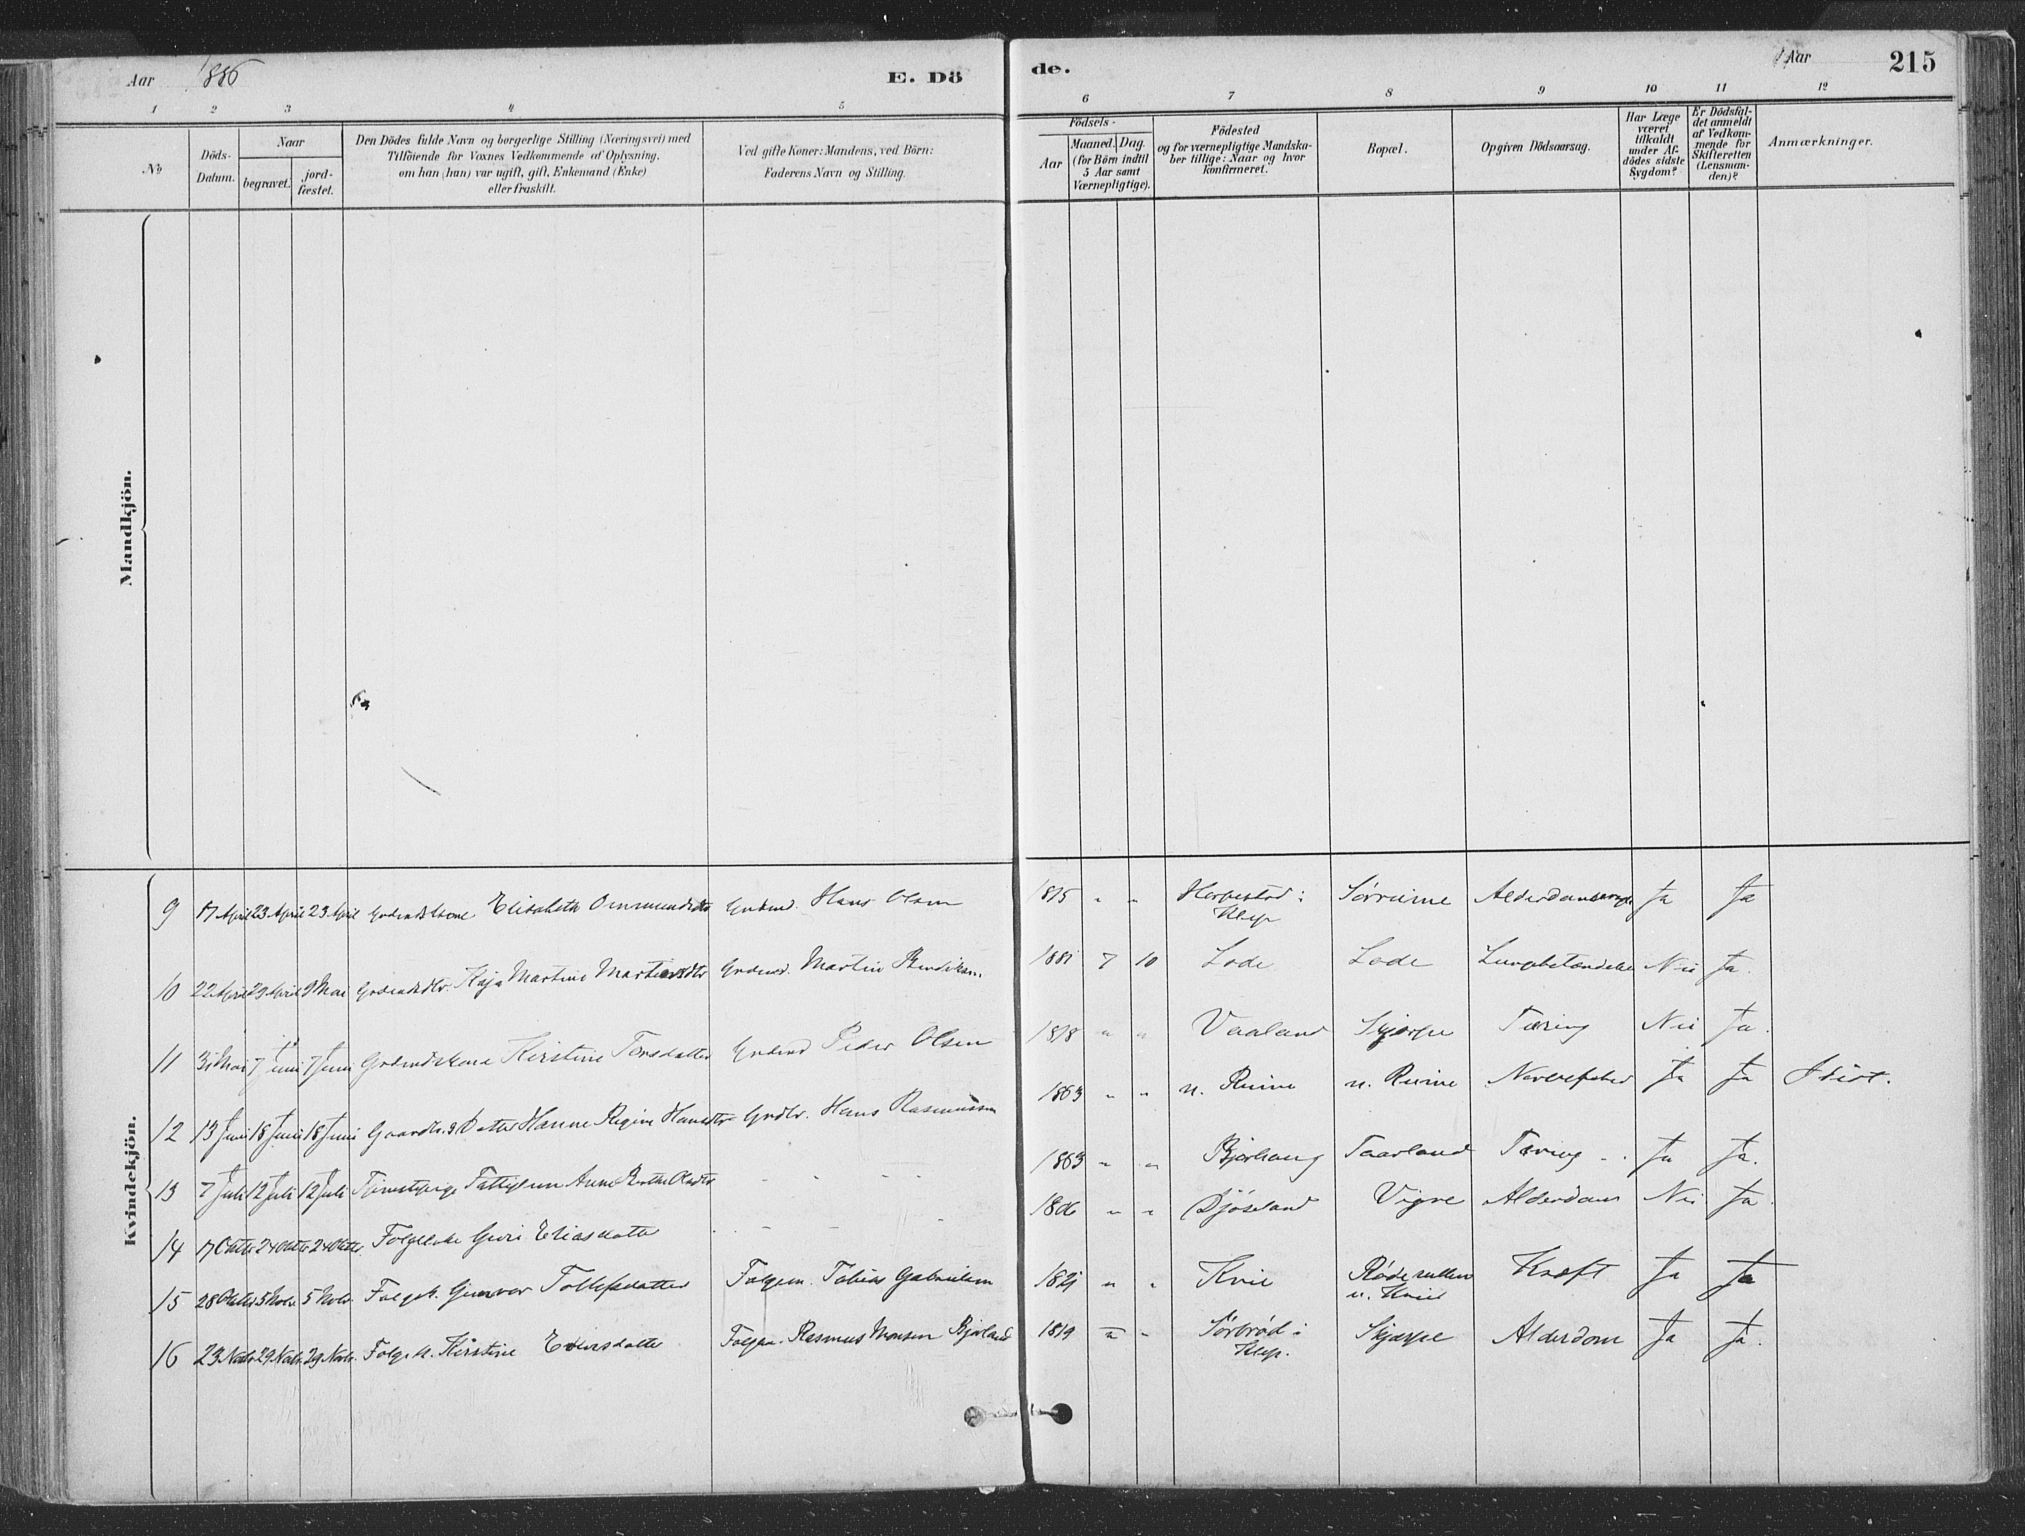 Aar 1886 E. Dö de. Aar 215
1 2 3 4 5 6 7 8 9 10 11 12
No
Döds-Datum.
Naar begravet. jordfæstet.
Den Dödes fulde Navn og borgerlige Stilling (Næringsvei) med
Tilföiende for Voxnes Vedkommende af Oplysning,
om han (hun) var ugift, gift, Enkemand (Enke)
eller fraskilt.
Ved gifte Koner: Mandens, ved Börn:
Faderens Navn og Stilling.
Födsels-
Aar Maaned. Dag.
(for Börn indtil
5 Aar samt
Værnepligtige).
Födested
og for værnepligtige Mandskaber tillige: Naar og hvor
konfirmeret.
Bopæl.
Opgiven Dödsaarsag.
Har Læge
været
tilkaldt
under Afdödes sidste
Sygdom?
Er Dödsfaldet anmeldt
af Vedkommende for
Skifteretten
(Lensmanden)?
Anmærkninger.
Mandkjön.
Kvindekjön.
9 17 April 23 April 23 April Elisabeth Ommundsdtr Grdmd. Hans Olsen 1815 " " Horpestad i Klep Sørruime Ja Ja
10 22 April 29 April 9 Mai Kaja Martine Grdmd. Martin 1881 7 10 Lode Lode Lungebetændelse Nei Ja.
11 31 Mai 7 Juni 7 Juni Kirstine Grdmd Peder Olsen 1818 " " Vaaland Skjærpe Tæring Nei Ja.
12 13 Juni 18 Juni 18 Juni Gaardbr.s Datter Hanne Regine Hansdtr Grdbr. Hans Rasmussen 1863 " " n. Ruime n. Ruime Ja Ja Idiot.
13 7 Juli 12 Juli 12 Juli Anne 1863 " " Bjørhaug Taarland Tæring Ja Ja.
14 17 Oktbr 24 Oktbr 24 Oktbr. Guri Eliasdatter 1806 " " Djøseland Vigre Alderdom Nei Ja.
15 28 Oktbr 5 Novbr 5 Novbr. Gunvor Tollefsdatter Folgem. Tobias Gabrielsen 1821 " " Kvie n. Kvie Kræft Ja Ja
16 23 Novbr 29 Novbr 29 Novbr. Folgek. Kirstine Folgem. Rasmus Monsen Bjorland 1819 " " Sørbrød i Klep. Skjærpe Alderdom Ja Ja.